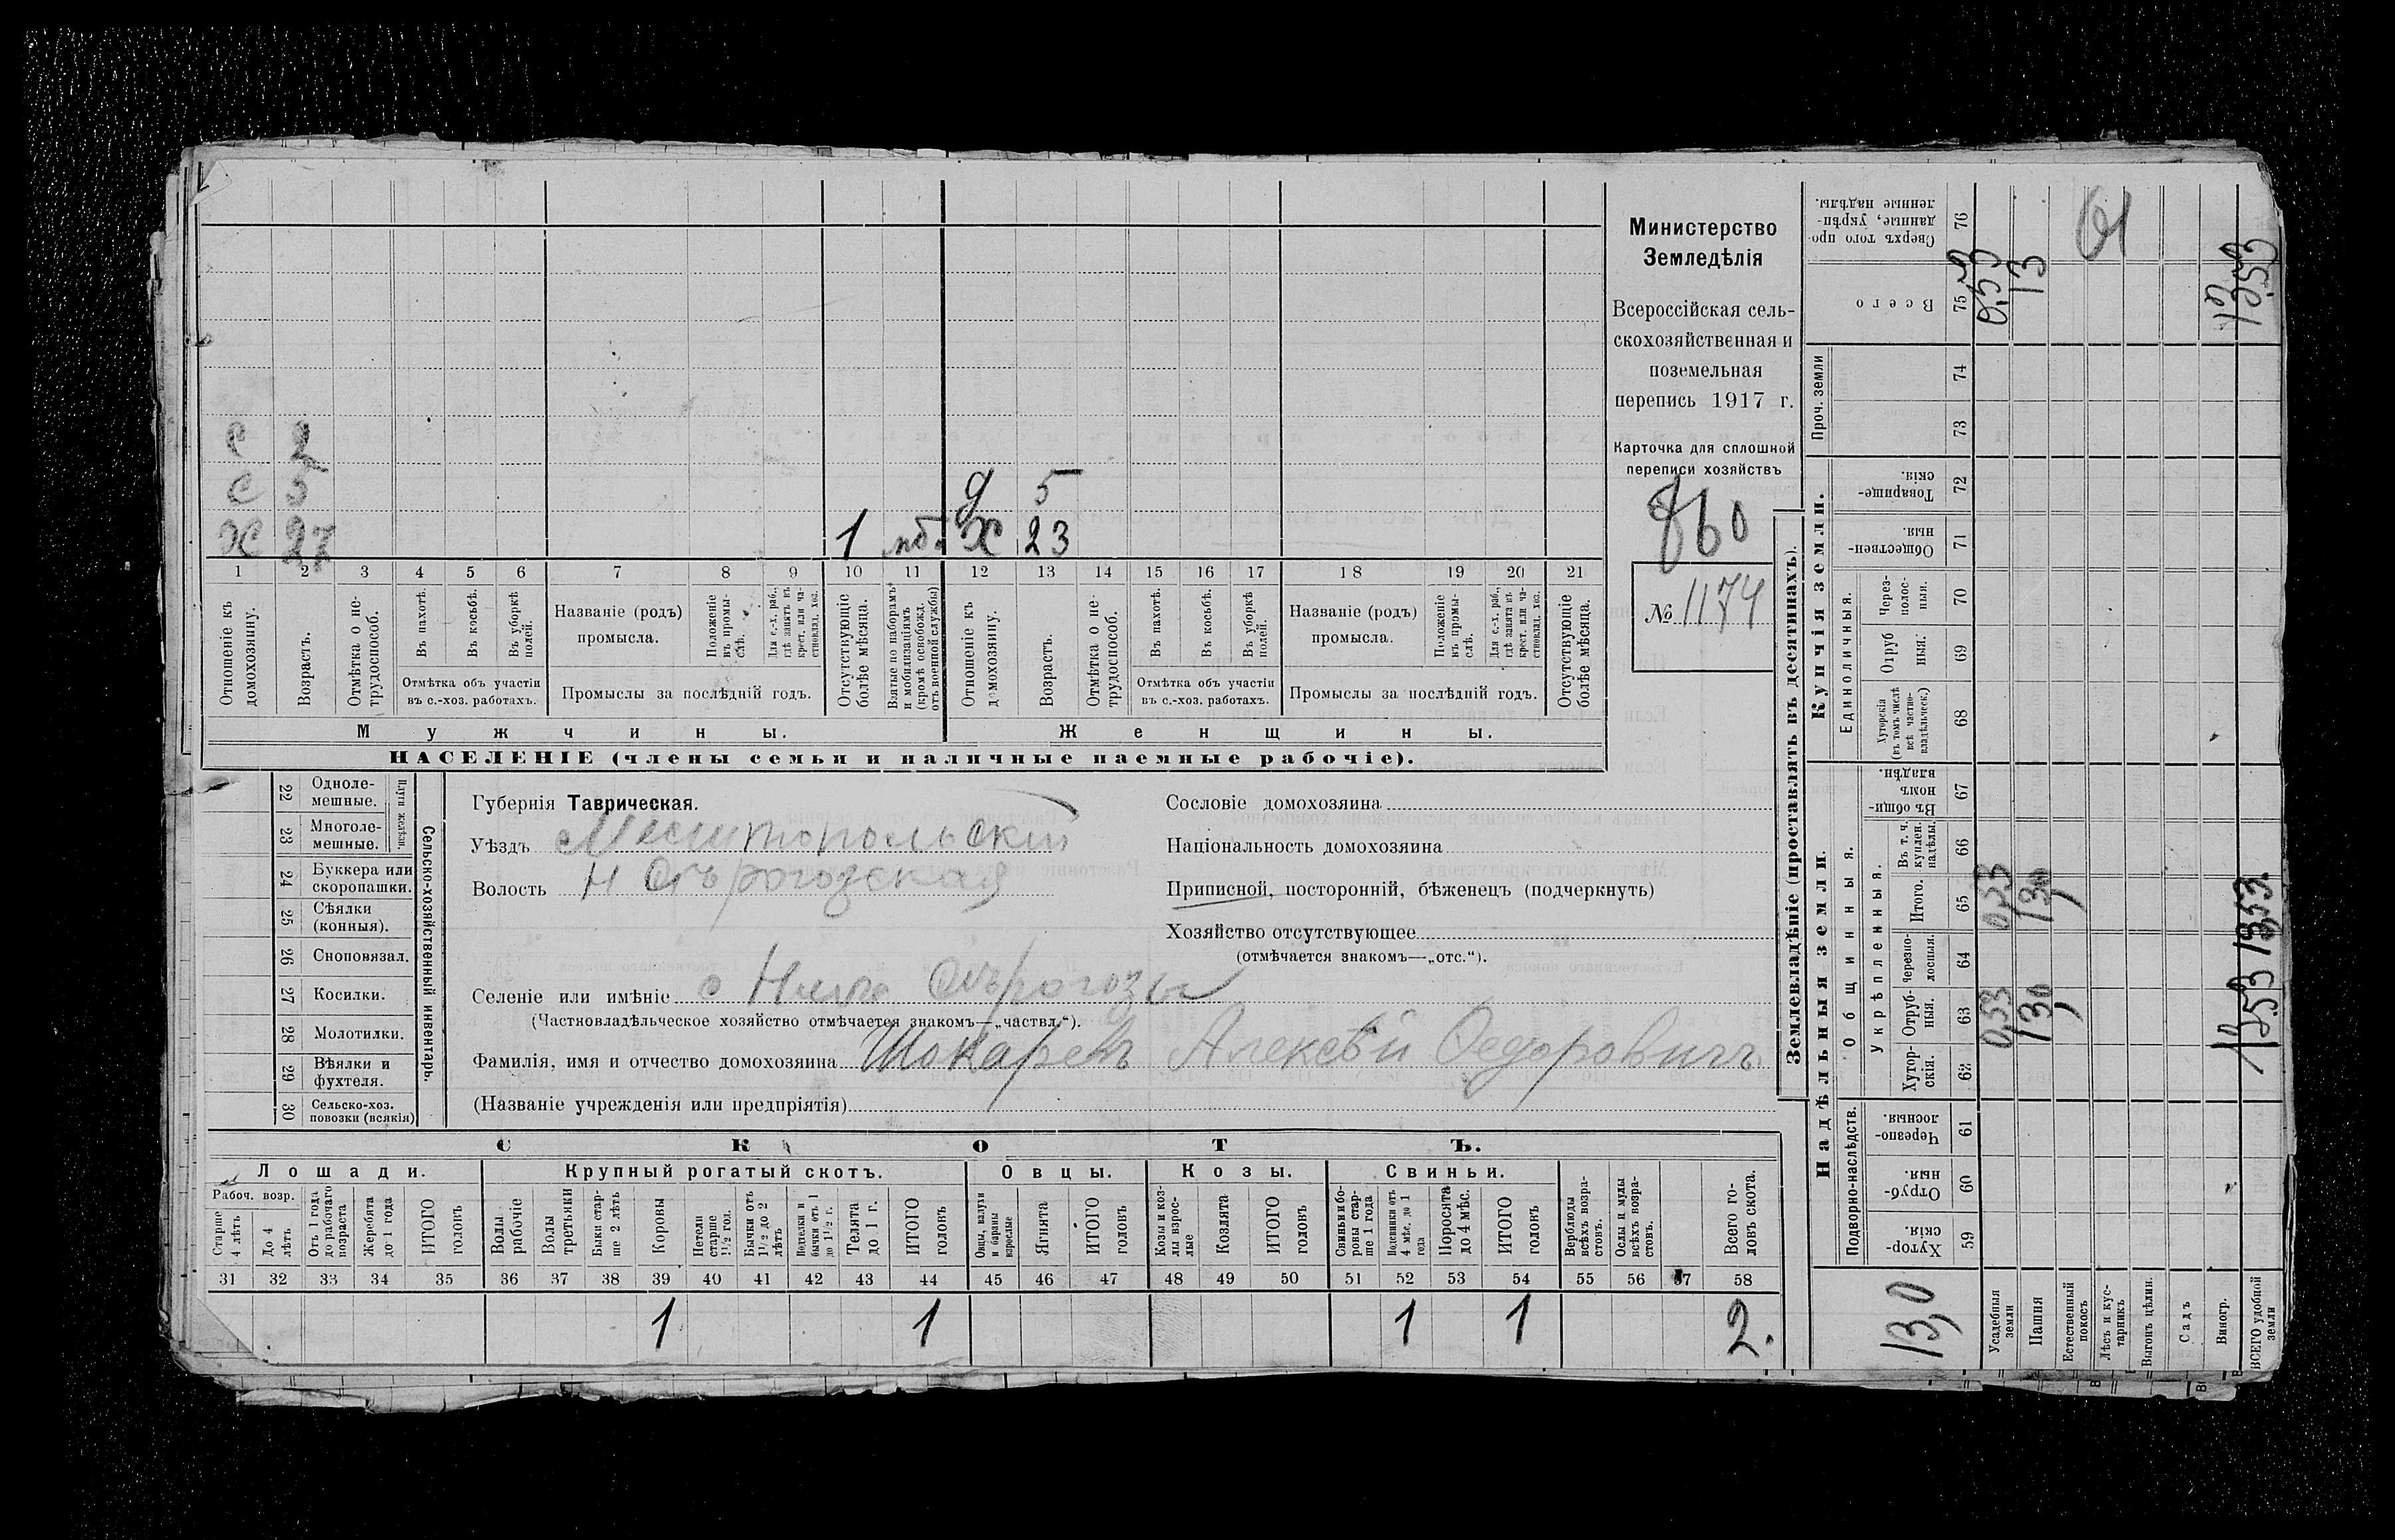 С 2
С 5
Х 27
1
Д 5
Х 23
1 2 3 4 5 6 7 8 9 10 11 12 13 14 15 16 17 18 19 20 21
Отношеніе къ домохозяину.
Возрастъ.
Отмѣтка о нетрудоспособ.
Въ пахотѣ.
Въ косьбѣ.
Въ уборкѣ полей.
Отмѣтка объ участіи въ с.-хоз. работахъ.
Названіе (родъ) промысла.
Положеніе въ промыслѣ.
Для с.-х. раб., гдѣ занятъ въ крест. или частновлад. хоз.
Промыслы за послѣдній годъ.
Отсутствующіе болѣе мѣсяца.
Взятые по наборамъ и мобилизаціямъ (кромѣ освобожд. отъ военной службы)
Отношеніе къ домохозяину.
Возрастъ.
Отмѣтка о нетрудоспособ.
Въ пахотѣ.
Въ косьбѣ.
Въ уборкѣ полей.
Отмѣтка объ участіи въ с.-хоз. работахъ.
Названіе (родъ) промысла.
Положеніе въ промыслѣ.
Для с.-х. раб., гдѣ занята въ крест. или частновлад. хоз.
Промыслы за послѣдній годъ.
Отсутствующіе болѣе мѣсяца.
Мужчины.
Женщины.
НАСЕЛЕНІЕ (члены семьи и наличные наемные рабочіе).
Министерство
Земледѣлія
Всероссійская сель-
скохозяйственная и
поземельная
перепись 1917 г.
Карточка для сплошной
переписи хозяйствъ
860
№ 1174
22 Одноле-
мешные.
23 Многоле-
мешные.
Плуги желѣзн.
24 Буккера или
скоропашки.
25 Сѣялки
(конныя).
26 Сноповязал.
27 Косилки.
28 Молотилки.
29 Вѣялки и
фухтеля.
30 Сельско-хоз.
повозки (всякія)
Сельско-хозяйственный инвентарь.
Губернія Таврическая.
Уѣздъ Мелитопольскій
Волость Н Сѣрогозская
Селеніе или имѣніе с Нижн Сѣрогозы
(Частновладѣльческое хозяйство отмѣчается знакомъ—„частвл.“).
Фамилія, имя и отчество домохозяина Шокаревъ Алексѣй Федоровичъ
(Названіе учрежденія или предпріятія)
Сословіе домохозяина
Національность домохозяина
Приписной, посторонній, бѣженецъ (подчеркнуть)
Хозяйство отсутствующее
(отмѣчается знакомъ—„отс.“).
СКОТЪ.
Лошади. Крупный рогатый скотъ. Овцы. Козы. Свиньи.
Рабоч. возр.
Старше 4 лѣтъ
До 4 лѣтъ
Отъ 1 года до рабочаго возраста
Жеребята до 1 года
ИТОГО головъ
Волы рабочіе
Волы третьяки
Быки старше 2 лѣтъ
Коровы
Нетели старше 1½ год.
Бычки отъ 1½ до 2 лѣтъ
Подтелки и бычки отъ 1 до 1½ г.
Телята до 1 г.
ИТОГО головъ
Овцы, валухи и бараны взрослые
Ягнята
ИТОГО головъ
Козы и козлы взрослые
Козлята
ИТОГО головъ
Свиньи и боровы старше 1 года
Подсвинки отъ 4 мѣс. до 1 года
Поросята до 4 мѣс.
ИТОГО головъ
Верблюды всѣхъ возрастовъ.
Ослы и мулы всѣхъ возрастовъ.
Всего головъ скота.
31 32 33 34 35 36 37 38 39 40 41 42 43 44 45 46 47 48 49 50 51 52 53 54 55 56 57 58
1 1 1 1 2.
Землевладѣніе (проставлять въ десятинахъ).
Надѣльныя земли.
Купчія земли.
Проч. земли
Подворно-наслѣдств.
Общинныя.
Укрѣпленныя.
Единоличныя.
Хуторскія. 59
Отрубныя. 60
Черезполосныя. 61
Хуторскія. 62
Отрубныя. 63
Черезполосныя. 64
Итого. 65
Въ т. ч. куплен. надѣлы. 66
Въ общинномъ владѣн. 67
Хуторскія (въ томъ числѣ всѣ частновладѣльческ.) 68
Отрубныя. 69
Черезполосныя. 70
Общественныя. 71
Товарищескія. 72
73
74
Всего 75
Сверхъ того проданные, укрѣпленные надѣлы. 76
13,0
Усадебныя земли 0,53 0,53 0,53
Пашня 13,0 13,0 13
Естественный покосъ
Лѣсъ и кустарникъ
Выгонъ цѣлин.
Садъ
Виногр.
ВСЕГО удобной земли 13,53 13,53 13,53